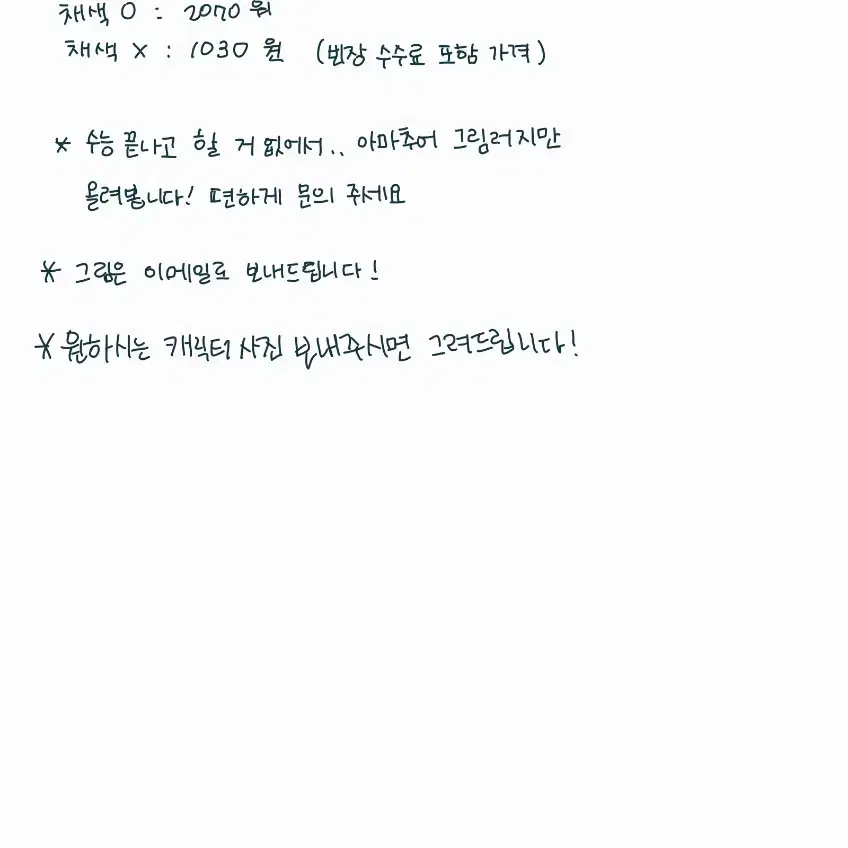 채색 O : 2070 원
채색 X : 1030 원 (번장 수수료 포함 가격)
* 수능 끝나고 할 거 없어서.. 아마추어 그림러지만
올려봅니다! 편하게 문의 주세요
* 그림은 이메일로 보내드립니다!
* 원하시는 캐릭터 사진 보내주시면 그려드립니다!